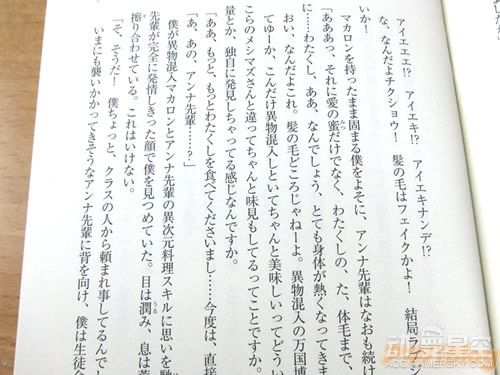 アイエエエ!?　アイエキ!?　アイエキナンデ!?
な、なんだよチクショウ!　髪の毛はフェイクかよ!　結局ラブ
いか!
マカロンを持ったまま固まる僕をよそに、アンナ先輩はなおも続け
「あああっ、それに愛の蜜だけでなく、わたくしの、た、体毛まで、
に……わたくし、ああ、なんでしょう、とても身体が熱くなってきま
おい、なんだよこれ。髪の毛どころじゃねーよ。異物混入の万国博
てゆーか、こんだけ異物混入しといてちゃんと美味しいってどうい
こらのメシマズさんと違ってちゃんと味見もしてるってことですか。
量とか、独自に発見しちゃってる感じなんですか。
「あ、あの、アンナ先輩……?」
「ああ、もっと、もっとわたくしを食べてくださいまし……今度は、直接
僕が異物混入マカロンとアンナ先輩の異次元料理スキルに思いを馳
先輩が完全に発情しきった顔で僕を見つめていた。目は潤み、息は荒
擦り合わせている。これはいけない。
「そ、そうだ!　僕ちょっと、クラスの人から頼まれ事してるんで
いまにも襲いかかってきそうなアンナ先輩に背を向け、僕は生徒会
ACG.GAMERSKY.COM